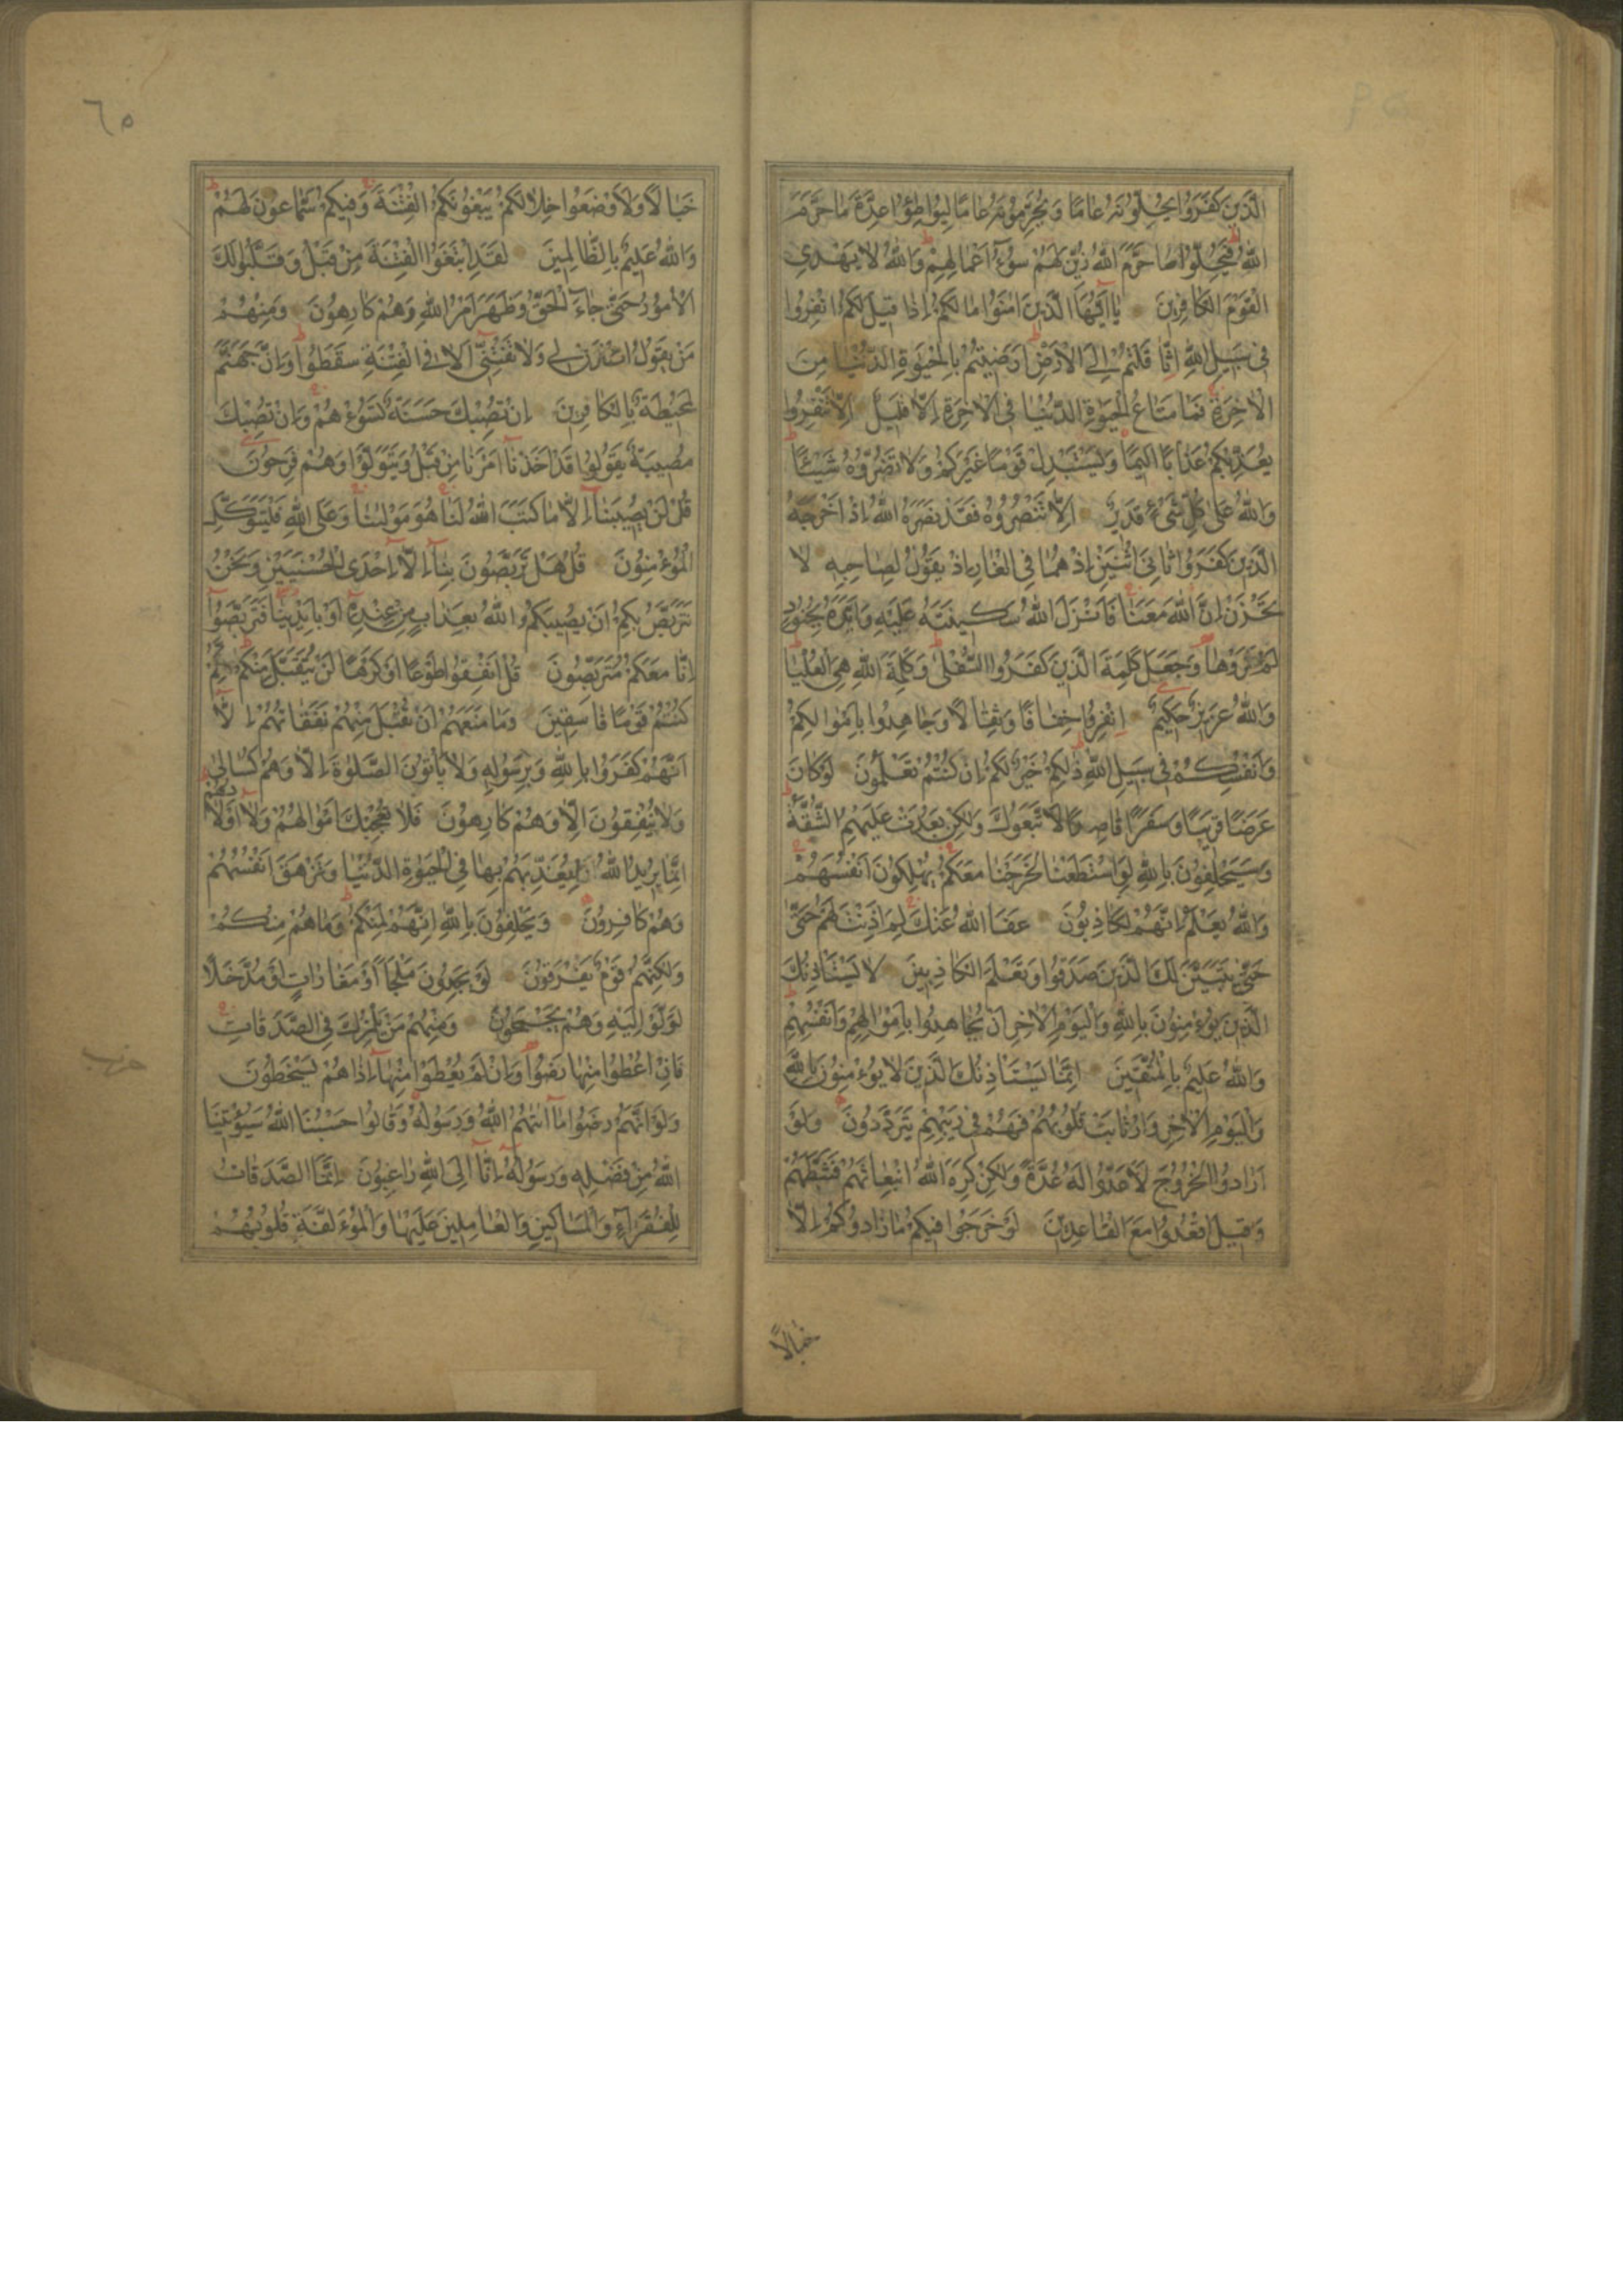 الَّذِينَ كَفَرُوا يُحِلُّونَهُ عَامًا وَيُحَرِّمُونَهُ عَامًا لِيُوَاطِؤُا عِدَّةَ مَا حَرَّمَ
اللّٰهُ فَيُحِلُّوا مَا حَرَّمَ اللّٰهُ زُيِّنَ لَهُمْ سُوۤءُ اَعْمَالِهِمْ وَاللّٰهُ لَا يَهْدِي
الْقَوْمَ الْكَافِرِينَ يَاۤ اَيُّهَا الَّذِينَ اٰمَنُوا مَا لَكُمْ اِذَا قِيلَ لَكُمُ انْفِرُوا
فِي سَبِيلِ اللّٰهِ اثَّاقَلْتُمْ اِلَى الْاَرْضِ اَرَضِيتُمْ بِالْحَيٰوةِ الدُّنْيَا مِنَ
الْاٰخِرَةِ فَمَا مَتَاعُ الْحَيٰوةِ الدُّنْيَا فِي الْاٰخِرَةِ اِلَّا قَلِيلٌ اِلَّا تَنْفِرُوا
يُعَذِّبْكُمْ عَذَابًا اَلِيمًا وَيَسْتَبْدِلْ قَوْمًا غَيْرَكُمْ وَلَا تَضُرُّوهُ شَيْئًا
وَاللّٰهُ عَلٰى كُلِّ شَيْءٍ قَدِيرٌ اِلَّا تَنْصُرُوهُ فَقَدْ نَصَرَهُ اللّٰهُ اِذْ اَخْرَجَهُ
الَّذِينَ كَفَرُوا ثَانِيَ اثْنَيْنِ اِذْ هُمَا فِي الْغَارِ اِذْ يَقُولُ لِصَاحِبِهِ لَا
تَحْزَنْ اِنَّ اللّٰهَ مَعَنَا فَاَنْزَلَ اللّٰهُ سَكِينَتَهُ عَلَيْهِ وَاَيَّدَهُ بِجُنُودٍ
لَمْ تَرَوْهَا وَجَعَلَ كَلِمَةَ الَّذِينَ كَفَرُوا السُّفْلٰى وَكَلِمَةُ اللّٰهِ هِيَ الْعُلْيَا
وَاللّٰهُ عَزِيزٌ حَكِيمٌ اِنْفِرُوا خِفَافًا وَثِقَالًا وَجَاهِدُوا بِاَمْوَالِكُمْ
وَاَنْفُسِكُمْ فِي سَبِيلِ اللّٰهِ ذٰلِكُمْ خَيْرٌ لَكُمْ اِنْ كُنْتُمْ تَعْلَمُونَ لَوْ كَانَ
عَرَضًا قَرِيبًا وَسَفَرًا قَاصِدًا لَاتَّبَعُوكَ وَلٰكِنْ بَعُدَتْ عَلَيْهِمُ الشُّقَّةُ
وَسَيَحْلِفُونَ بِاللّٰهِ لَوِ اسْتَطَعْنَا لَخَرَجْنَا مَعَكُمْ يُهْلِكُونَ اَنْفُسَهُمْ
وَاللّٰهُ يَعْلَمُ اِنَّهُمْ لَكَاذِبُونَ عَفَا اللّٰهُ عَنْكَ لِمَ اَذِنْتَ لَهُمْ حَتّٰى
حَتّٰى يَتَبَيَّنَ لَكَ الَّذِينَ صَدَقُوا وَتَعْلَمَ الْكَاذِبِينَ لَا يَسْتَاْذِنُكَ
الَّذِينَ يُؤْمِنُونَ بِاللّٰهِ وَالْيَوْمِ الْاٰخِرِ اَنْ يُجَاهِدُوا بِاَمْوَالِهِمْ وَاَنْفُسِهِمْ
وَاللّٰهُ عَلِيمٌ بِالْمُتَّقِينَ اِنَّمَا يَسْتَاْذِنُكَ الَّذِينَ لَا يُؤْمِنُونَ بِاللّٰهِ
وَالْيَوْمِ الْاٰخِرِ وَارْتَابَتْ قُلُوبُهُمْ فَهُمْ فِي رَيْبِهِمْ يَتَرَدَّدُونَ وَلَوْ
اَرَادُوا الْخُرُوجَ لَاَعَدُّوا لَهُ عُدَّةً وَلٰكِنْ كَرِهَ اللّٰهُ انْبِعَاثَهُمْ فَثَبَّطَهُمْ
وَقِيلَ اقْعُدُوا مَعَ الْقَاعِدِينَ لَوْ خَرَجُوا فِيكُمْ مَا زَادُوكُمْ اِلَّا
خَبَالًا
٦٥
خَبَالًا وَلَاَوْضَعُوا خِلَالَكُمْ يَبْغُونَكُمُ الْفِتْنَةَ وَفِيكُمْ سَمَّاعُونَ لَهُمْ
وَاللّٰهُ عَلِيمٌ بِالظَّالِمِينَ لَقَدِ ابْتَغَوُا الْفِتْنَةَ مِنْ قَبْلُ وَقَلَّبُوا لَكَ
الْاُمُورَ حَتّٰى جَاۤءَ الْحَقُّ وَظَهَرَ اَمْرُ اللّٰهِ وَهُمْ كَارِهُونَ وَمِنْهُمْ
مَنْ يَقُولُ ائْذَنْ لِي وَلَا تَفْتِنِّي اَلَا فِي الْفِتْنَةِ سَقَطُوا وَاِنَّ جَهَنَّمَ
لَمُحِيطَةٌ بِالْكَافِرِينَ اِنْ تُصِبْكَ حَسَنَةٌ تَسُؤْهُمْ وَاِنْ تُصِبْكَ
مُصِيبَةٌ يَقُولُوا قَدْ اَخَذْنَا اَمْرَنَا مِنْ قَبْلُ وَيَتَوَلَّوْا وَهُمْ فَرِحُونَ
قُلْ لَنْ يُصِيبَنَا اِلَّا مَا كَتَبَ اللّٰهُ لَنَا هُوَ مَوْلٰينَا وَعَلَى اللّٰهِ فَلْيَتَوَكَّلِ
الْمُؤْمِنُونَ قُلْ هَلْ تَرَبَّصُونَ بِنَا اِلَّا اِحْدَى الْحُسْنَيَيْنِ وَنَحْنُ
نَتَرَبَّصُ بِكُمْ اَنْ يُصِيبَكُمُ اللّٰهُ بِعَذَابٍ مِنْ عِنْدِهِ اَوْ بِاَيْدِينَا فَتَرَبَّصُوا
اِنَّا مَعَكُمْ مُتَرَبِّصُونَ قُلْ اَنْفِقُوا طَوْعًا اَوْ كَرْهًا لَنْ يُتَقَبَّلَ مِنْكُمْ اِنَّكُمْ
كُنْتُمْ قَوْمًا فَاسِقِينَ وَمَا مَنَعَهُمْ اَنْ تُقْبَلَ مِنْهُمْ نَفَقَاتُهُمْ اِلَّا
اَنَّهُمْ كَفَرُوا بِاللّٰهِ وَبِرَسُولِهِ وَلَا يَاْتُونَ الصَّلٰوةَ اِلَّا وَهُمْ كُسَالٰى
وَلَا يُنْفِقُونَ اِلَّا وَهُمْ كَارِهُونَ فَلَا تُعْجِبْكَ اَمْوَالُهُمْ وَلَا اَوْلَادُهُمْ
اِنَّمَا يُرِيدُ اللّٰهُ لِيُعَذِّبَهُمْ بِهَا فِي الْحَيٰوةِ الدُّنْيَا وَتَزْهَقَ اَنْفُسُهُمْ
وَهُمْ كَافِرُونَ وَيَحْلِفُونَ بِاللّٰهِ اِنَّهُمْ لَمِنْكُمْ وَمَا هُمْ مِنْكُمْ
وَلٰكِنَّهُمْ قَوْمٌ يَفْرَقُونَ لَوْ يَجِدُونَ مَلْجَاً اَوْ مَغَارَاتٍ اَوْ مُدَّخَلًا
لَوَلَّوْا اِلَيْهِ وَهُمْ يَجْمَحُونَ وَمِنْهُمْ مَنْ يَلْمِزُكَ فِي الصَّدَقَاتِ
فَاِنْ اُعْطُوا مِنْهَا رَضُوا وَاِنْ لَمْ يُعْطَوْا مِنْهَا اِذَا هُمْ يَسْخَطُونَ
وَلَوْ اَنَّهُمْ رَضُوا مَا اٰتٰيهُمُ اللّٰهُ وَرَسُولُهُ وَقَالُوا حَسْبُنَا اللّٰهُ سَيُؤْتِينَا
اللّٰهُ مِنْ فَضْلِهِ وَرَسُولُهُ اِنَّا اِلَى اللّٰهِ رَاغِبُونَ اِنَّمَا الصَّدَقَاتُ
لِلْفُقَرَاۤءِ وَالْمَسَاكِينِ وَالْعَامِلِينَ عَلَيْهَا وَالْمُؤَلَّفَةِ قُلُوبُهُمْ
حزب